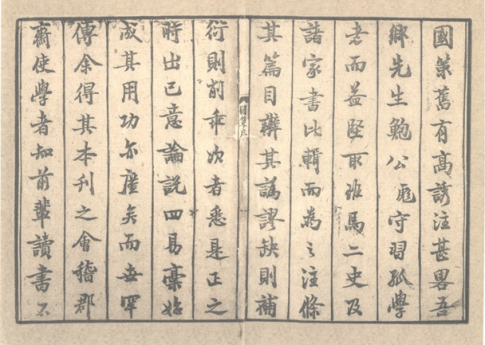 國策舊有高誘注甚畧吾
鄉先生鮑公彪守習孤學
老而益堅取班馬二史及
諸家書比輯而為之注條
其篇目辨其訛謬缺則補
衍則削乖次者悉是正之
時出己意論說四易稾始
成其用功亦廑矣而世罕
傳余得其本刊之會稽郡
齋使學者知前輩讀書不